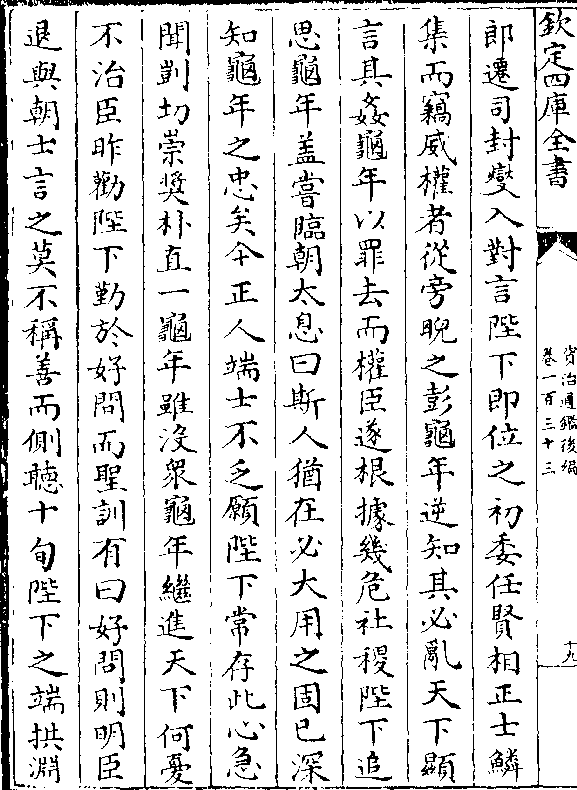 欽定四庫全書
資治通鑑後編
卷一百三十三
十九
郎遷司封燮入對言陛下即位之初委任賢相正士鱗
集而竊威權者從旁睨之彭龜年逆知其必亂天下顯
言其姦龜年以罪去而權臣遂根據幾危社稷陛下追
思龜年盖嘗臨朝太息曰斯人猶在必大用之固已深
知龜年之忠矣今正人端士不乏願陛下常存此心急
聞剴切崇奬朴直一龜年雖沒衆龜年繼進天下何憂
不治臣昨勸陛下勤於好問而聖訓有曰好問則明臣
退與朝士言之莫不稱善而側聽十旬陛下之端拱淵